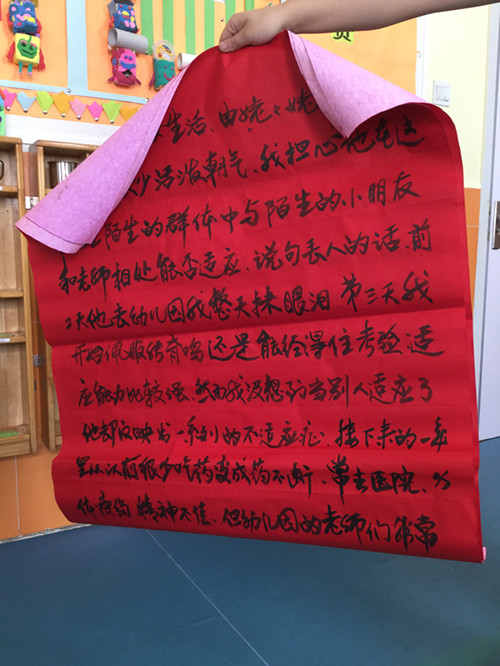 生活、由姥姥姥
少活泼朝气、我担心他在这
陌生的群体中与陌生的小朋友
和老师相处能否适应、说句丢人的话、前
2天他去幼儿园我整天抹眼泪 第三天我
开始佩服传育鸣还是能经得住考验适
应能力比较强、然而我没想到当别人适应了
他却反映出一系列的不适应症、接下来的一年
里从以前很少吃药变成药不断、常去医院、
精神不佳、但幼儿园的老师们非常